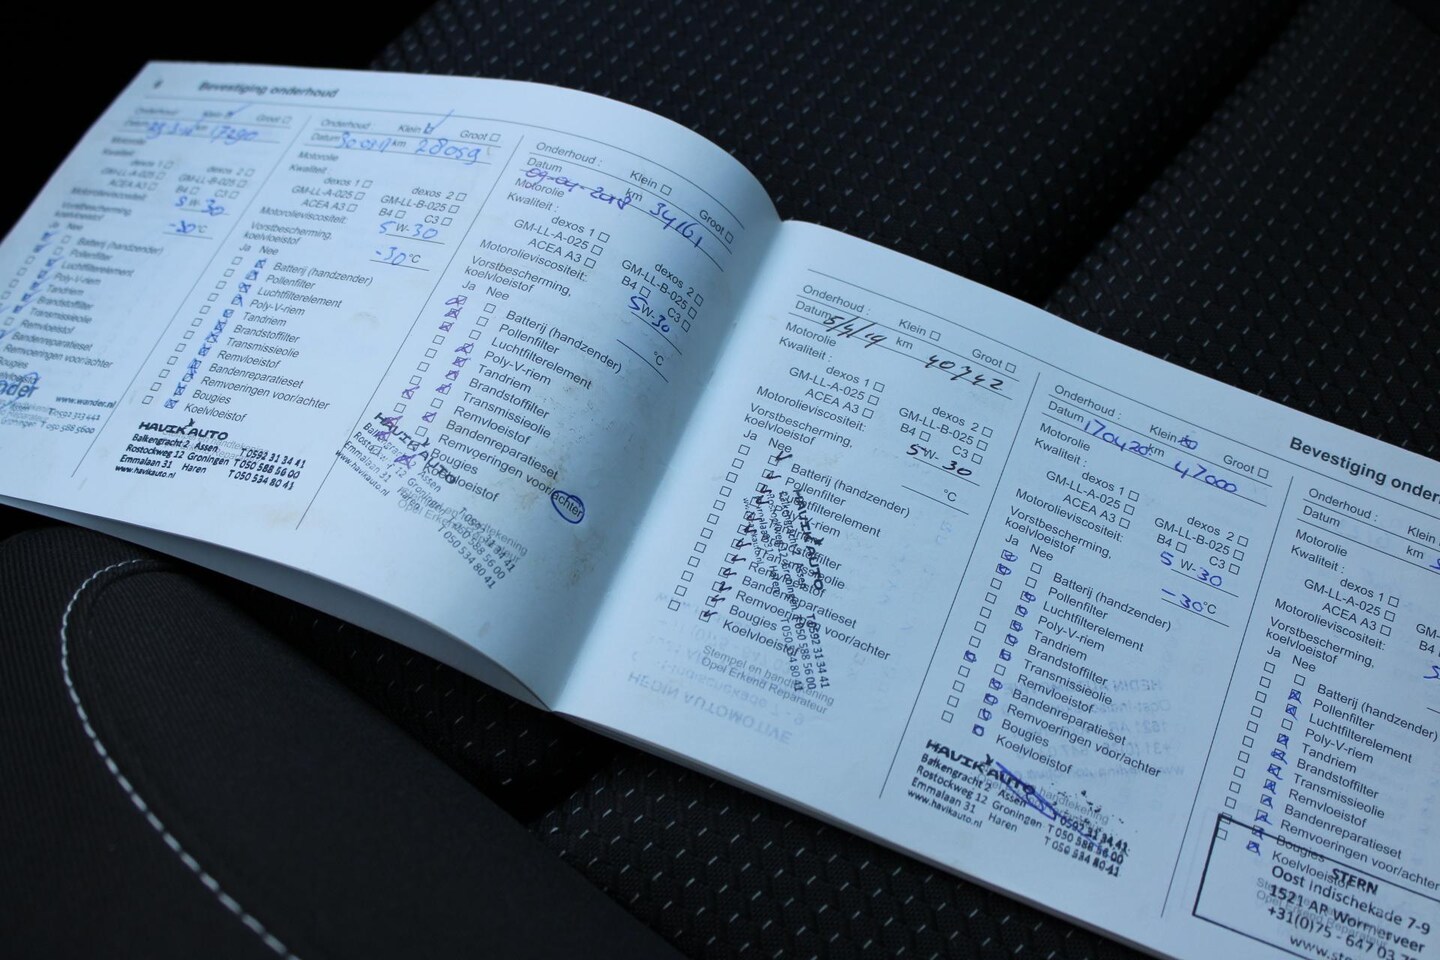 Bevestiging onderhoud
Onderhoud : Klein Groot
Datum km 17290
Motorolie
Kwaliteit:
dexos 1 dexos 2
GM-LL-A-025 GM-LL-B-025
ACEA A3 B4 C3
Motorolieviscositeit: 5W-30
Vorstbescherming,
koelvloeistof -30 °C
Ja Nee
Batterij (handzender)
Pollenfilter
Luchtfilterelement
Poly-V-riem
Tandriem
Brandstoffilter
Transmissieolie
Remvloeistof
Bandenreparatieset
Remvoeringen voor/achter
Bougies
www.wander.nl
T 0592 313 441
T 050 588 5600
Onderhoud : Klein Groot
Datum km 28059
Motorolie
Kwaliteit
dexos 1 dexos 2
GM-LL-A-025 GM-LL-B-025
ACEA A3 B4 C3
Motorolieviscositeit: 5W-30
Vorstbescherming,
koelvloeistof -30 °C
Ja Nee
Batterij (handzender)
Pollenfilter
Luchtfilterelement
Poly-V-riem
Tandriem
Brandstoffilter
Transmissieolie
Remvloeistof
Bandenreparatieset
Remvoeringen voor/achter
Bougies
Koelvloeistof
HAVIK AUTO
Balkengracht 2 Assen T 0592 31 34 41
Rostockweg 12 Groningen T 050 588 56 00
Emmalaan 31 Haren T 050 534 80 41
www.havikauto.nl
Onderhoud : Klein Groot
Datum 09-04-2018 km 34161
Motorolie
Kwaliteit:
dexos 1 dexos 2
GM-LL-A-025 GM-LL-B-025
ACEA A3 B4 C3
Motorolieviscositeit: 5W-30
Vorstbescherming,
koelvloeistof °C
Ja Nee
Batterij (handzender)
Pollenfilter
Luchtfilterelement
Poly-V-riem
Tandriem
Brandstoffilter
Transmissieolie
Remvloeistof
Bandenreparatieset
Remvoeringen voor/achter
Bougies
Koelvloeistof
HAVIK AUTO
Assen T 0592 31 34 41
Rostockweg 12 Groningen T 050 588 56 00
Emmalaan 31 Haren T 050 534 80 41
www.havikauto.nl
Onderhoud : Klein Groot
Datum 5/4/19 km 40342
Motorolie
Kwaliteit:
dexos 1 dexos 2
GM-LL-A-025 GM-LL-B-025
ACEA A3 B4 C3
Motorolieviscositeit: 5W-30
Vorstbescherming,
koelvloeistof °C
Ja Nee
Batterij (handzender)
Pollenfilter
Luchtfilterelement
Transmissieolie
Remvloeistof
Bandenreparatieset
Remvoeringen voor/achter
Bougies
Koelvloeistof
HAVIK AUTO
T 0592 31 34 41
T 050 588 56 00
T 050 534 80 41
Stempel en handtekening
Opel Erkend Reparateur
HEDIN AUTOMOTIVE
Onderhoud : Klein Groot
Datum 170420 km 47000
Motorolie
Kwaliteit:
dexos 1 dexos 2
GM-LL-A-025 GM-LL-B-025
ACEA A3 B4 C3
Motorolieviscositeit: 5W-30
Vorstbescherming,
koelvloeistof -30 °C
Ja Nee
Batterij (handzender)
Pollenfilter
Luchtfilterelement
Poly-V-riem
Tandriem
Brandstoffilter
Transmissieolie
Remvloeistof
Bandenreparatieset
Remvoeringen voor/achter
Bougies
Koelvloeistof
HAVIK AUTO
Balkengracht 2 Assen T 0592 31 34 41
Rostockweg 12 Groningen T 050 588 56 00
Emmalaan 31 Haren T 050 534 80 41
www.havikauto.nl
Bevestiging onder
Onderhoud : Klein
Datum km
Motorolie
Kwaliteit:
dexos 1
GM-LL-A-025
ACEA A3 B4
Motorolieviscositeit:
Vorstbescherming,
koelvloeistof
Ja Nee
Batterij (handzender)
Pollenfilter
Luchtfilterelement
Poly-V-riem
Tandriem
Brandstoffilter
Transmissieolie
Remvloeistof
Bandenreparatieset
Remvoeringen voor/achter
Bougies
Koelvloeistof
STERN
Oost Indischekade 7-9
1521 AR Wormerveer
+31(0)75 - 647 03
www.ste